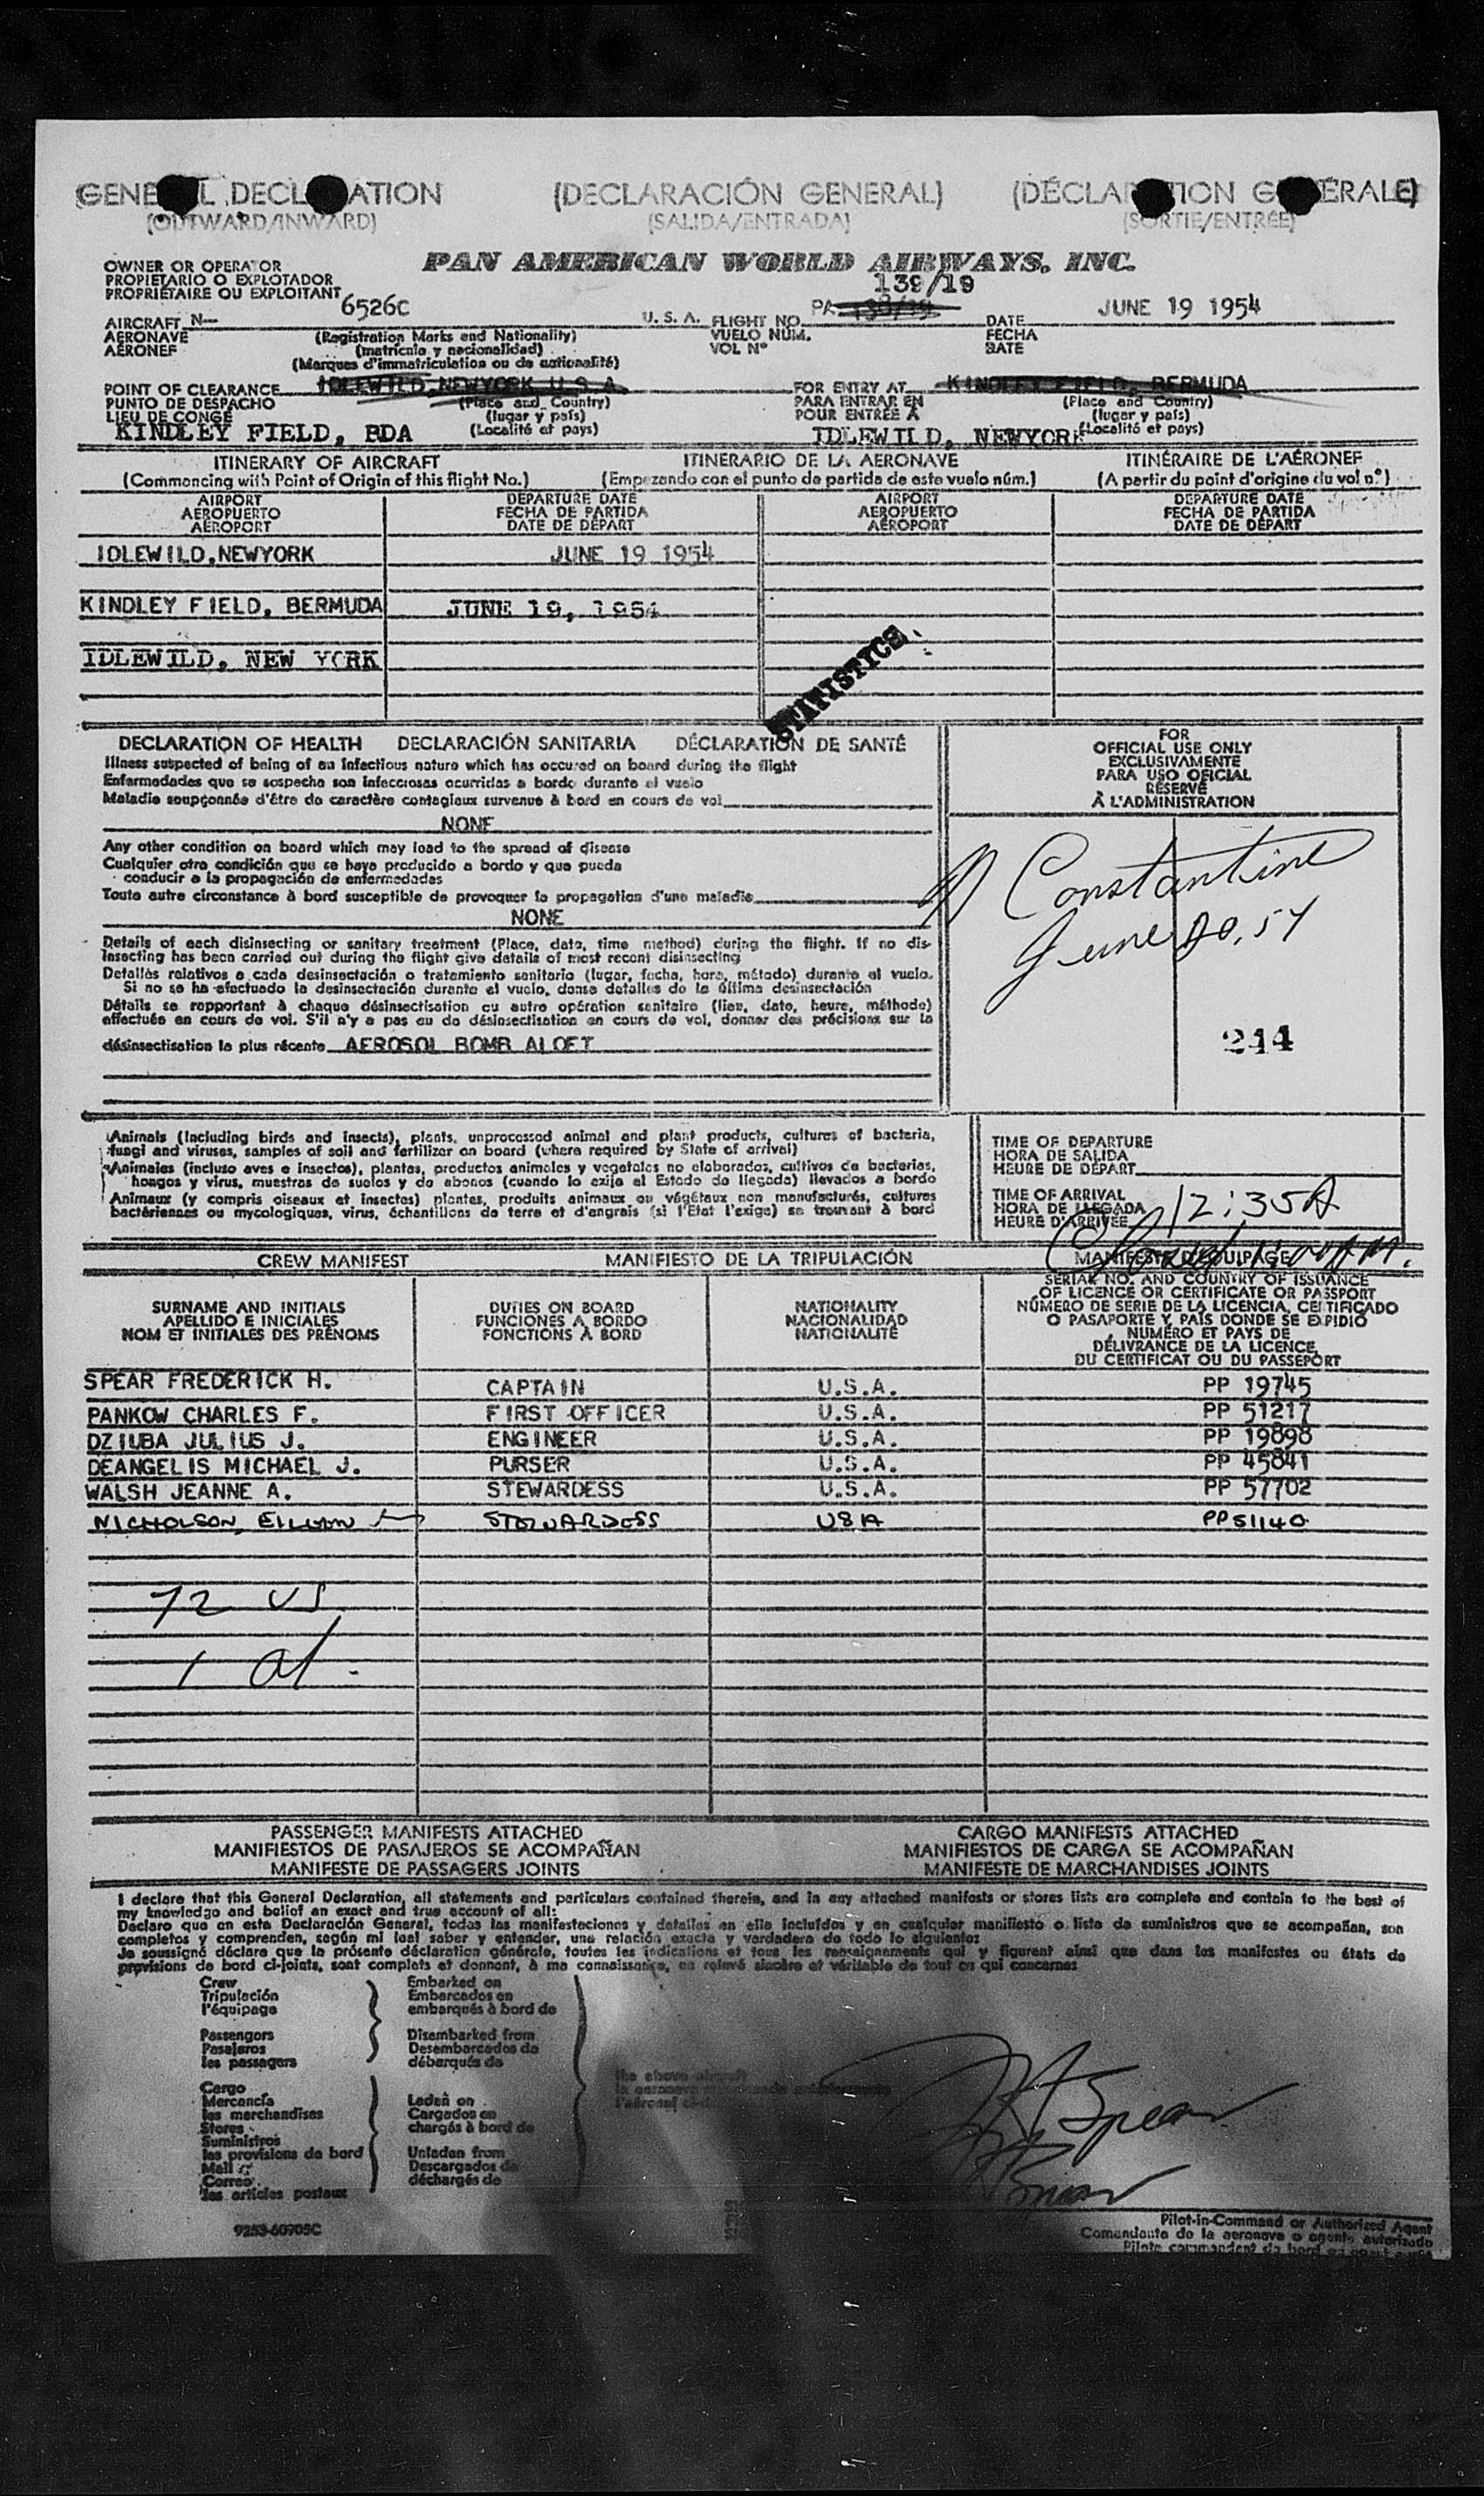 GENE L DECL ATION (DECLARACIÓN GENERAL) (DÉCLAR TION G ÉRALE)
(OUTWARD/INWARD) (SALIDA/ENTRADA) (SORTIE/ENTRÉE)
OWNER OR OPERATOR
PROPIETARIO O EXPLOTADOR
PROPRIÉTAIRE OU EXPLOITANT
PAN AMERICAN WORLD AIRWAYS, INC.
139/19
AIRCRAFT N— 6526C U. S. A. FLIGHT NO. PA 138/19 DATE JUNE 19 1954
AERONAVE (Registration Marks and Nationality) VUELO NÚM. FECHA
AÉRONEF (matrícula y nacionalidad) VOL Nº DATE
(Marques d'immatriculation ou de nationalité)
POINT OF CLEARANCE IDLEWILD, NEWYORK U.S.A. FOR ENTRY AT KINDLEY FIELD, BERMUDA
PUNTO DE DESPACHO (Place and Country) PARA ENTRAR EN (Place and Country)
LIEU DE CONGÉ (lugar y país) POUR ENTRÉE À (lugar y país)
KINDLEY FIELD, BDA (Localité et pays) IDLEWILD, NEWYORK (Localité et pays)
ITINERARY OF AIRCRAFT ITINERARIO DE LA AERONAVE ITINÉRAIRE DE L'AÉRONEF
(Commencing with Point of Origin of this flight No.) (Empezando con el punto de partida de este vuelo núm.) (A partir du point d'origine du vol nº)
AIRPORT DEPARTURE DATE AIRPORT DEPARTURE DATE
AEROPUERTO FECHA DE PARTIDA AEROPUERTO FECHA DE PARTIDA
AÉROPORT DATE DE DÉPART AÉROPORT DATE DE DÉPART
IDLEWILD, NEWYORK JUNE 19 1954
KINDLEY FIELD, BERMUDA JUNE 19, 1954
IDLEWILD, NEW YORK
STATISTICS
DECLARATION OF HEALTH DECLARACIÓN SANITARIA DÉCLARATION DE SANTÉ
Illness suspected of being of an infectious nature which has occured on board during the flight
Enfermedades que se sospecha son infecciosas ocurridas a bordo durante el vuelo
Maladie soupçonnée d'être de caractère contagieux survenue à bord en cours de vol
NONE
Any other condition on board which may lead to the spread of disease
Cualquier otra condición que se haya producido a bordo y que pueda
conducir a la propagación de enfermedades
Toute autre circonstance à bord susceptible de provoquer la propagation d'une maladie
NONE
Details of each disinsecting or sanitary treatment (Place, date, time method) during the flight. If no dis-
insecting has been carried out during the flight give details of most recent disinsecting
Detalles relativos a cada desinsectación o tratamiento sanitario (lugar, fecha, hora, método) durante el vuelo.
Si no se ha efectuado la desinsectación durante el vuelo, danse detalles de la última desinsectación
Détails se rapportant à chaque désinsectisation ou autre opération sanitaire (lieu, date, heure, méthode)
effectuée en cours de vol. S'il n'y a pas eu de désinsectisation en cours de vol, donner des précisions sur la
désinsectisation la plus récente AEROSOL BOMB ALOFT
FOR
OFFICIAL USE ONLY
EXCLUSIVAMENTE
PARA USO OFICIAL
RÉSERVÉ
À L'ADMINISTRATION
Constantine
June 20, 54
244
Animals (Including birds and insects), plants, unprocessed animal and plant products, cultures of bacteria,
fungi and viruses, samples of soil and fertilizer on board (where required by State of arrival)
Animales (incluso aves e insectos), plantas, productos animales y vegetales no elaborados, cultivos de bacterias,
hongos y virus, muestras de suelos y de abonos (cuando lo exija el Estado de llegada) llevados a bordo
Animaux (y compris oiseaux et insectes) plantes, produits animaux ou végétaux non manufacturés, cultures
bactériennes ou mycologiques, virus, échantillons de terre et d'engrais (si l'Etat l'exige) se trouvant à bord
TIME OF DEPARTURE
HORA DE SALIDA
HEURE DE DÉPART
TIME OF ARRIVAL
HORA DE LLEGADA
HEURE D'ARRIVÉE 12:35A
CREW MANIFEST MANIFIESTO DE LA TRIPULACIÓN MANIFESTE D'ÉQUIPAGE
SURNAME AND INITIALS DUTIES ON BOARD NATIONALITY SERIAL NO. AND COUNTRY OF ISSUANCE
APELLIDO E INICIALES FUNCIONES A BORDO NACIONALIDAD OF LICENCE OR CERTIFICATE OR PASSPORT
NOM ET INITIALES DES PRÉNOMS FONCTIONS À BORD NATIONALITÉ NÚMERO DE SERIE DE LA LICENCIA, CERTIFICADO
O PASAPORTE Y PAÍS DONDE SE EXPIDIÓ
NUMÉRO ET PAYS DE
DÉLIVRANCE DE LA LICENCE,
DU CERTIFICAT OU DU PASSEPORT
SPEAR FREDERICK H. CAPTAIN U.S.A. PP 19745
PANKOW CHARLES F. FIRST OFFICER U.S.A. PP 51217
DZIUBA JULIUS J. ENGINEER U.S.A. PP 19898
DEANGELIS MICHAEL J. PURSER U.S.A. PP 45841
WALSH JEANNE A. STEWARDESS U.S.A. PP 57702
NICHOLSON, STEWARDESS USA PP51140
72 US
1 al.
PASSENGER MANIFESTS ATTACHED CARGO MANIFESTS ATTACHED
MANIFIESTOS DE PASAJEROS SE ACOMPAÑAN MANIFIESTOS DE CARGA SE ACOMPAÑAN
MANIFESTE DE PASSAGERS JOINTS MANIFESTE DE MARCHANDISES JOINTS
I declare that this General Declaration, all statements and particulars contained therein, and in any attached manifests or stores lists are complete and contain to the best of
my knowledge and belief an exact and true account of all:
Declaro que en esta Declaración General, todas las manifestaciones y detalles en ella incluídos y en cualquier manifiesto o lista de suministros que se acompañan, son
completos y comprenden, según mi leal saber y entender, una relación exacta y verdadera de todo lo siguiente:
Je soussigné déclare que la présente déclaration générale, toutes les indications et tous les renseignements qui y figurent ainsi que dans les manifestes ou états de
provisions de bord ci-joints, sont complets et donnent, à ma connaissance, un relevé sincère et véritable de tout ce qui concerne:
Crew Embarked on
Tripulación Embarcados en
l'équipage embarqués à bord de
Passengers Disembarked from
Pasajeros Desembarcados de
les passagers débarqués de
the above aircraft
Cargo
Mercancía Laden on
les marchandises Cargados en
Stores chargés à bord de
Suministros
les provisions de bord Unladen from
Mail Descargados de
Correo déchargés de
les articles postaux
Spear
9253-60905C
Pilot-in-Command or Authorized Agent
Comandante de la aeronave o agente autorizado
Pilote commandant de bord